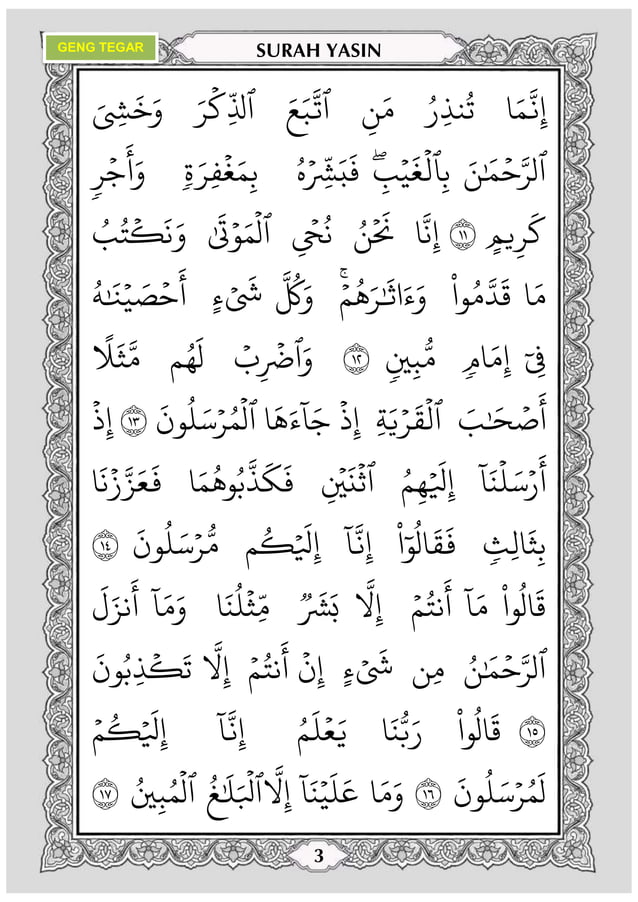 GENG TEGAR
SURAH YASIN
إِنَّمَا تُنذِرُ مَنِ ٱتَّبَعَ ٱلذِّكْرَ وَخَشِىَ
ٱلرَّحْمَـٰنَ بِٱلْغَيْبِ ۖ فَبَشِّرْهُ بِمَغْفِرَةٍ وَأَجْرٍ
كَرِيمٍ ١١ إِنَّا نَحْنُ نُحْىِ ٱلْمَوْتَىٰ وَنَكْتُبُ
مَا قَدَّمُوا۟ وَءَاثَـٰرَهُمْ ۚ وَكُلَّ شَىْءٍ أَحْصَيْنَـٰهُ
فِىٓ إِمَامٍ مُّبِينٍ ١٢ وَٱضْرِبْ لَهُم مَّثَلًا
أَصْحَـٰبَ ٱلْقَرْيَةِ إِذْ جَآءَهَا ٱلْمُرْسَلُونَ ١٣ إِذْ
أَرْسَلْنَآ إِلَيْهِمُ ٱثْنَيْنِ فَكَذَّبُوهُمَا فَعَزَّزْنَا
بِثَالِثٍ فَقَالُوٓا۟ إِنَّآ إِلَيْكُم مُّرْسَلُونَ ١٤
قَالُوا۟ مَآ أَنتُمْ إِلَّا بَشَرٌ مِّثْلُنَا وَمَآ أَنزَلَ
ٱلرَّحْمَـٰنُ مِن شَىْءٍ إِنْ أَنتُمْ إِلَّا تَكْذِبُونَ
١٥ قَالُوا۟ رَبُّنَا يَعْلَمُ إِنَّآ إِلَيْكُمْ
لَمُرْسَلُونَ ١٦ وَمَا عَلَيْنَآ إِلَّا ٱلْبَلَـٰغُ ٱلْمُبِينُ ١٧
3